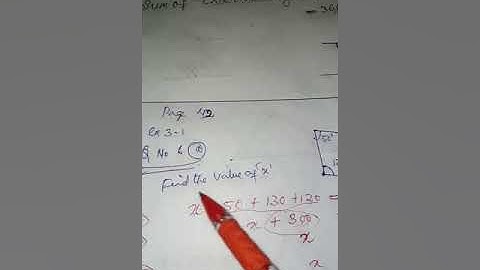 Sum of
Page 42
Ex 3-1
Q No 6
Find the value of 'x'
x 50 + 130 + 130 =
x + 300
x
x